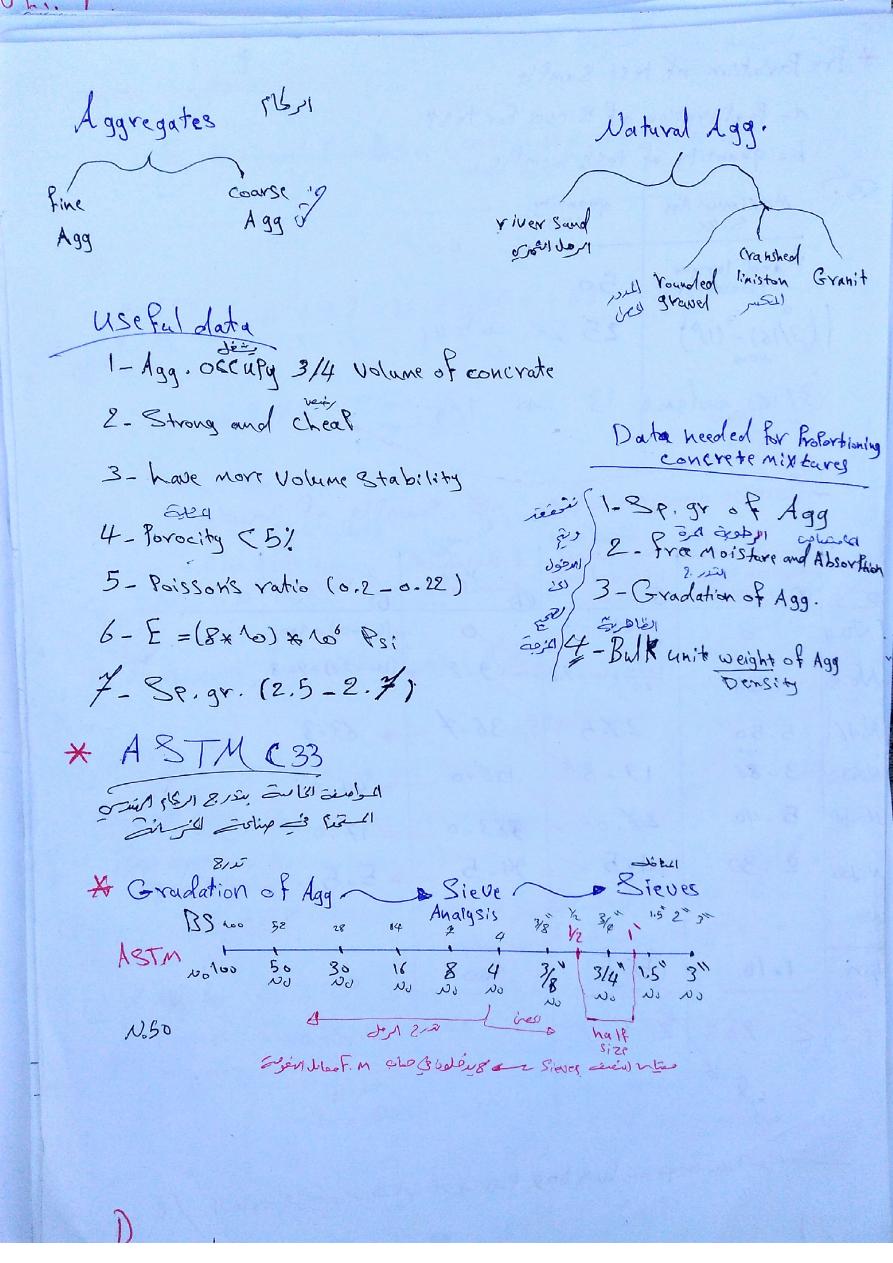 Aggregates الركام
fine
Agg
coarse
Agg
Natural Agg.
river sand
الرمل النهري
rounded
gravel
المدور
cranshed
limiston
المكسر
Granit
Useful data
يشغل
1- Agg. occupy 3/4 volume of concrate
رخيص
2- Strong and cheap
3- have more volume stability
4- Porocity < 5%
5- Poisson's ratio (0.2-0.22)
6- E = (8*10) * 10⁶ Psi
7- Sp. gr. (2.5-2.7)
Data needed for Proportioning
concrete mixtures
1- Sp. gr of Agg
الرطوبة الحرة
2- free Moisture and Absorption
التدرج
3- Gradation of Agg.
الظاهرية
4- Bulk unit weight of Agg
Density
* ASTM C33
المواصفة الخاصة بتدرج الركام الهندسي
المستخدم في صناعة الخرسانة
تدرج
المناخل
* Gradation of Agg Sieve Sieves
Analysis
BS 100 52 28 14 7 4 3/8" 1/2 3/4" 1.5" 2" 3"
1/2 1"
ASTM
No 100 50 30 16 8 4 3/8" 3/4" 1.5" 3"
No No No No No No No No No
N.50
تدرج الرمل
حصى
half
size
Sieves
F.M معامل النعومة
D